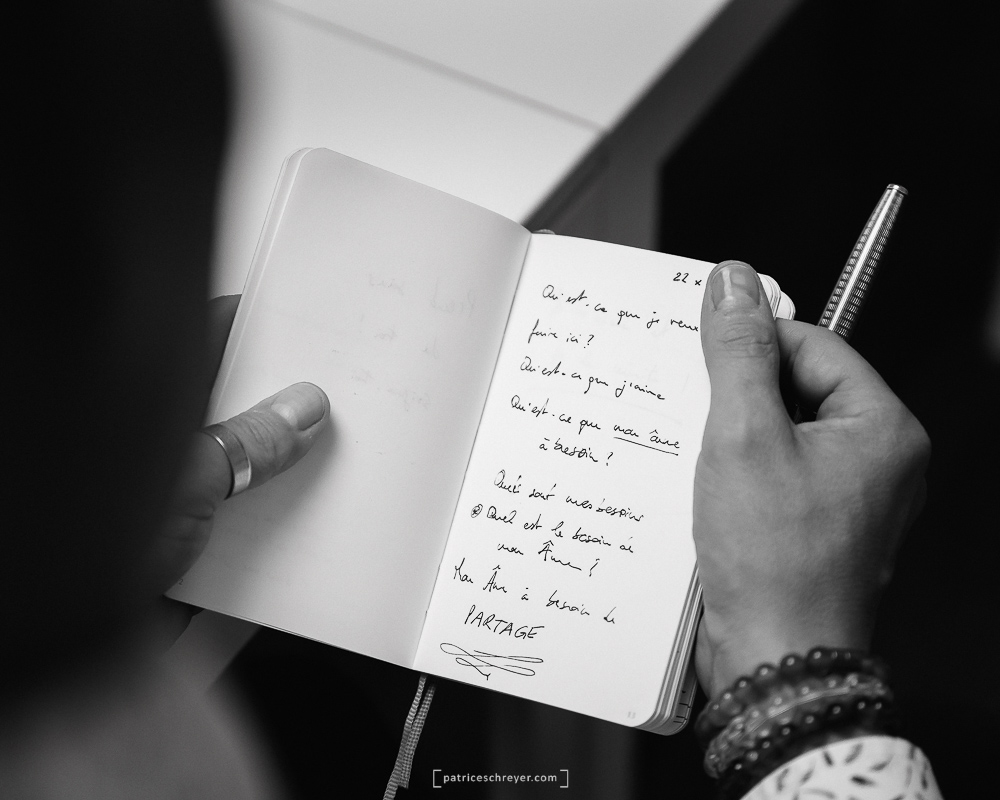 22 x
Qu'est-ce que je veux
faire ici ?
Qu'est-ce que j'aime
Qu'est-ce que mon âme
à besoin ?
Quels sont mes besoins
Quel est le besoin de
mon Âme ?
Mon Âme à besoin de
PARTAGE
[patriceschreyer.com]